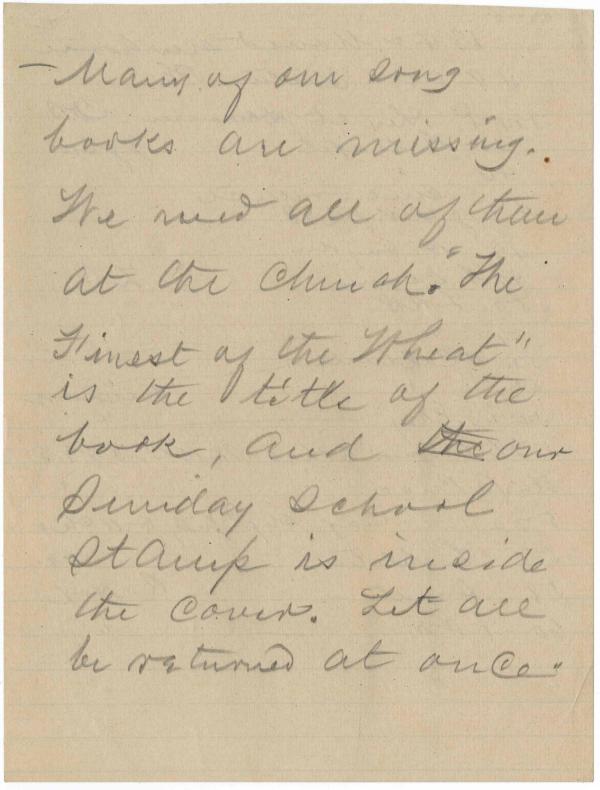 — Many of our song
books are missing.
We need all of them
at the church. "The
Finest of the Wheat"
is the title of the
book, and the our
Sunday School
stamp is inside
the cover. Let all
be returned at once"